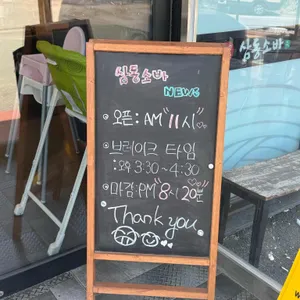 삼동소바
NEWS
오픈: AM "11시"
브레이크 타임
:오후 3:30~4:30
마감:PM "8시 20분"
Thank you
삼동소바